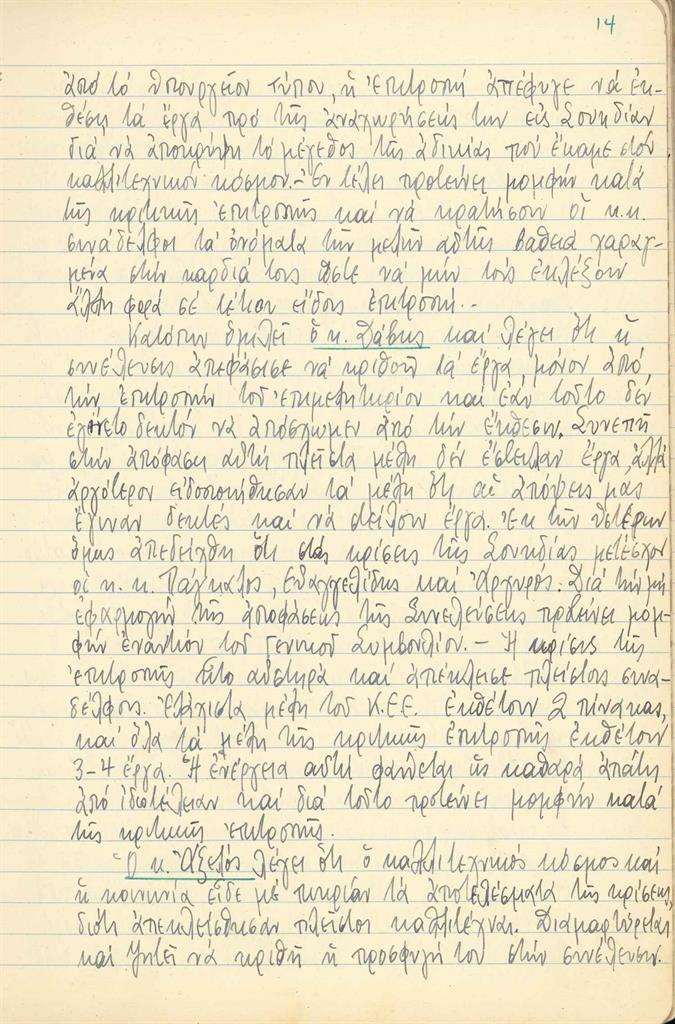 14
ἀπό τό Ὑπουργεῖον τύπου, ἡ Ἐπιτροπή ἀπέφυγε νά ἐκ-
θέσῃ τά ἔργα πρό τῆς ἀναχωρήσεώς των εἰς Σουηδίαν
διά νά ἀποκρύψῃ τό μέγεθος τῆς ἀδικίας πού ἔκαμε στόν
καλλιτεχνικόν κόσμον.- Ἐν τέλει προτείνει μομφήν κατά
τῆς κριτικῆς Ἐπιτροπῆς καί νά κρατήσουν οἱ κ.κ.
συνάδελφοι τά ὀνόματα τῶν μελῶν αὐτῆς βαθειά χαραγ-
μένα στήν καρδιά τους ὥστε νά μήν τούς ἐκλέξουν
ἄλλη φορά σέ τέτοιου εἴδους ἐπιτροπή.-
Κατόπιν ὁμιλεῖ ὁ κ. Δάβης καί λέγει ὅτι ἡ
συνέλευσις ἀπεφάσισε νά κριθοῦν τά ἔργα, μόνον ἀπό,
τήν ἐπιτροπήν τοῦ ἐπιμελητηρίου καί ἐάν τοῦτο δέν
ἐγίνετο δεκτόν νά ἀπόσχωμεν ἀπό τήν ἔκθεσιν. Συνεπῆ
στήν ἀπόφαση αὐτή πλεῖστα μέλη δέν ἔστειλαν ἔργα, ἀλλά
ἀργότερον εἰδοποιήθησαν τά μέλη ὅτι αἱ ἀπόψεις μας
ἔγιναν δεκτές καί νά στείλουν ἔργα. Ἐκ τῶν ὑστέρων
ὅμως ἀπεδείχθη ὅτι στάς κρίσεις τῆς Σουηδίας μετέσχον
οἱ κ.κ. Πάγκαλος, Εὐαγγελίδης καί Ἀργυρός. Διά τήν μή
ἐφαρμογήν τῆς ἀποφάσεως τῆς Συνελεύσεως προτείνει μομ-
φήν ἐναντίον τοῦ Γενικοῦ Συμβουλίου.- Ἡ κρίσις τῆς
Ἐπιτροπῆς ἦτο αὐστηρά καί ἀπέκλεισε πλείστους συνα-
δέλφους. Ἐλάχιστα μέλη τοῦ Κ.Ε.Ε. ἐκθέτουν 2 πίνακας,
καί ὅλα τά μέλη τῆς κριτικῆς ἐπιτροπῆς ἐκθέτουν
3-4 ἔργα. Ἡ ἐνέργεια αὐτή φαίνεται ὡς καθαρά ἀπάτη
ἀπό ἰδιοτέλειαν καί διά τοῦτο προτείνει μομφήν κατά
τῆς κριτικῆς ἐπιτροπῆς.
Ὁ κ. Ἀξελός λέγει ὅτι ὁ καλλιτεχνικός κόσμος καί
ἡ κοινωνία εἶδε μέ πικρίαν τά ἀποτελέσματα τῆς κρίσεως,
διότι ἀπεκλείσθησαν πλεῖστοι καλλιτέχναι. Διαμαρτύρεται
καί ζητεῖ νά κριθῇ ἡ προσφυγή του στήν συνέλευσιν.